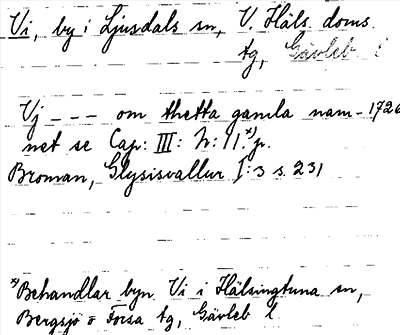 Vi, by i Ljusdals sn, V. Häls. doms.
tg, Gävleb. l
Vj - - - om thetta gamla nam- 1726
net se Cap: III: N: 11. x) p.
Broman, Glysisvallur I:3 s. 231
x) Behandlar byn Vi i Hälsingtuna sn,
Bergsjö o Forsa tg, Gävleb l.